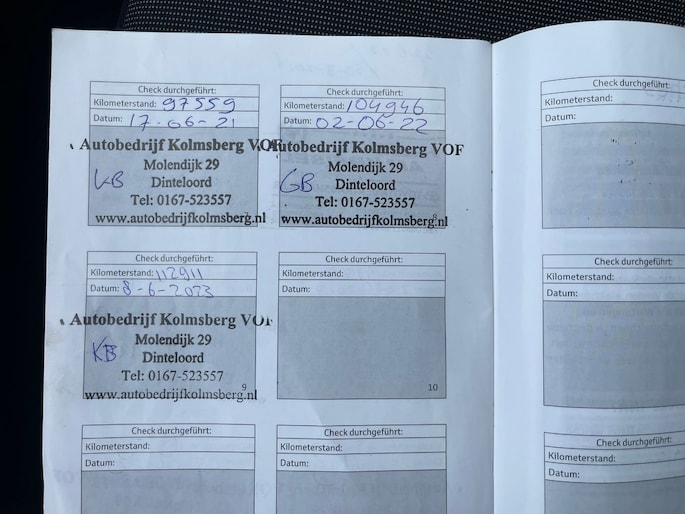 Check durchgeführt:
Kilometerstand: 97559
Datum: 17-06-21
Autobedrijf Kolmsberg VOF
Molendijk 29
KB
Dinteloord
Tel: 0167-523557
www.autobedrijfkolmsberg.nl
Check durchgeführt:
Kilometerstand: 104946
Datum: 02-06-22
Autobedrijf Kolmsberg VOF
Molendijk 29
GB
Dinteloord
Tel: 0167-523557
www.autobedrijfkolmsberg.nl
8
Check durchgeführt:
Kilometerstand: 112911
Datum: 8-6-2023
Autobedrijf Kolmsberg VOF
Molendijk 29
KB
Dinteloord
Tel: 0167-523557
9
www.autobedrijfkolmsberg.nl
Check durchgeführt:
Kilometerstand:
Datum:
10
Check durchgeführt:
Kilometerstand:
Datum:
Check durchgeführt:
Kilometerstand:
Datum:
Check durchgeführt:
Kilometerstand:
Datum:
Check durchgeführt:
Kilometerstand:
Datum:
Check durchgeführt:
Kilometerstand:
Datum: